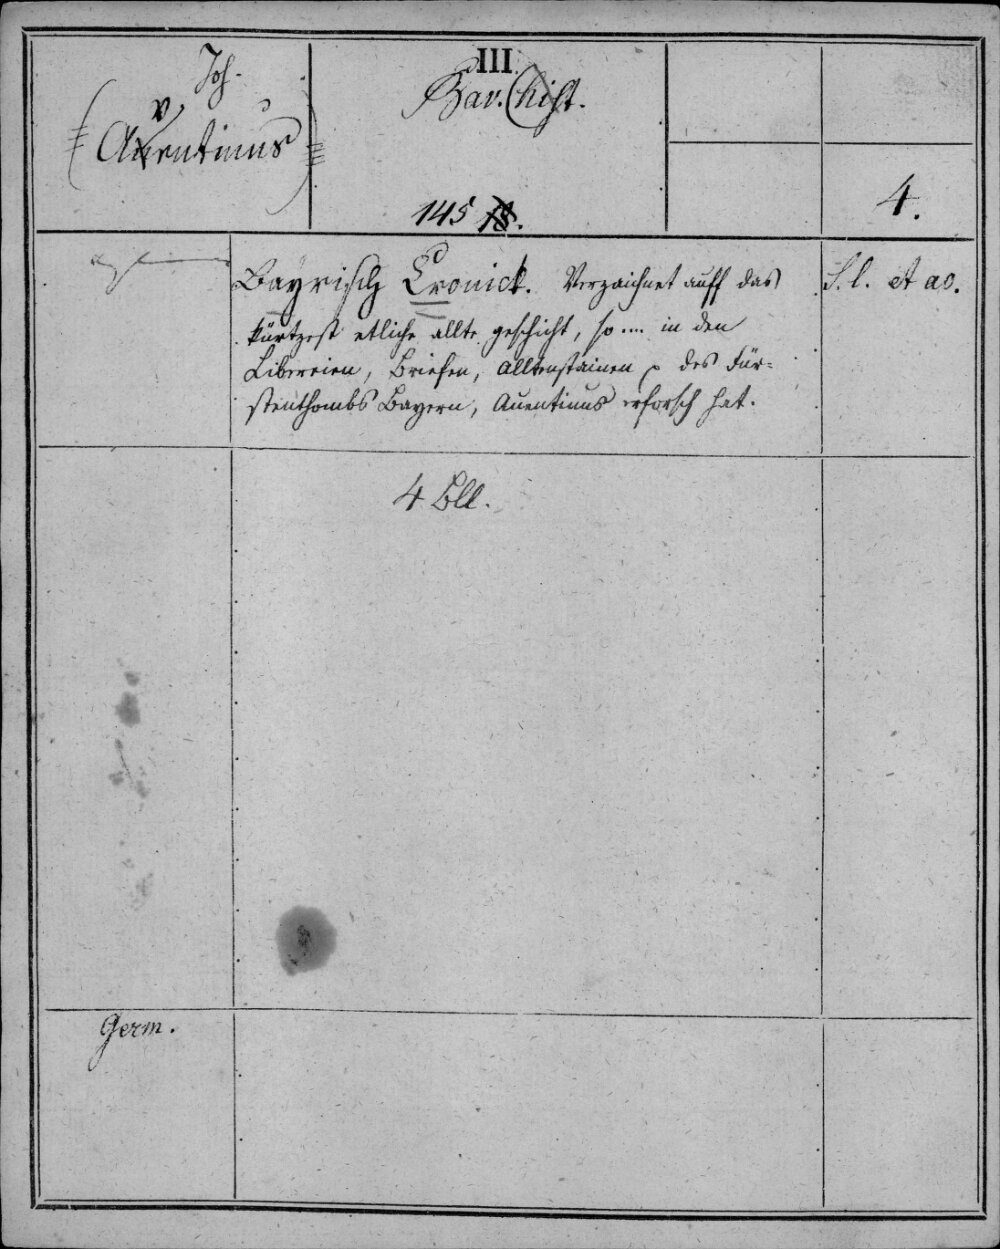 Joh.
Aventinus
III.
Bav. hist.
145
4.
Bayrisch Cronick. Verzaichnet auff das
kürtzest etliche allte geschicht, so .... in den
Libereien, Briefen, Alltenstainen des Für-
stenthombs Bayern, Auentinus erforsch hat.
S. l. et ao.
4 Bll.
Germ.